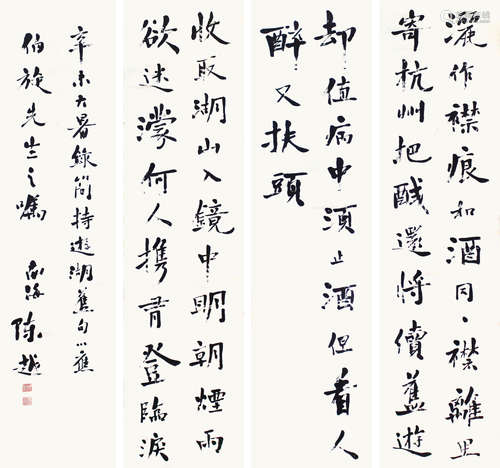 灑作襟痕和酒同一襟離思
寄杭州把醆還將續舊遊
却值病中須止酒但看人
醉又扶頭
收取湖山入鏡中明朝煙雨
欲迷濛何人攜青登臨淚
辛未大暑錄簡持遊湖舊句小蕉
伯旋先生之囑 南海陳